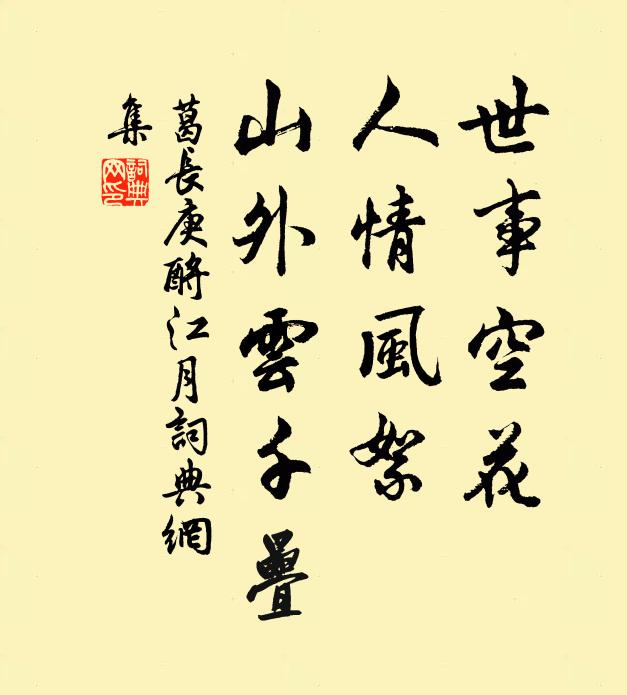 世事空花
人情風絮
山外雲千疊
葛長庚酹江月詞典網
集
詞典網印